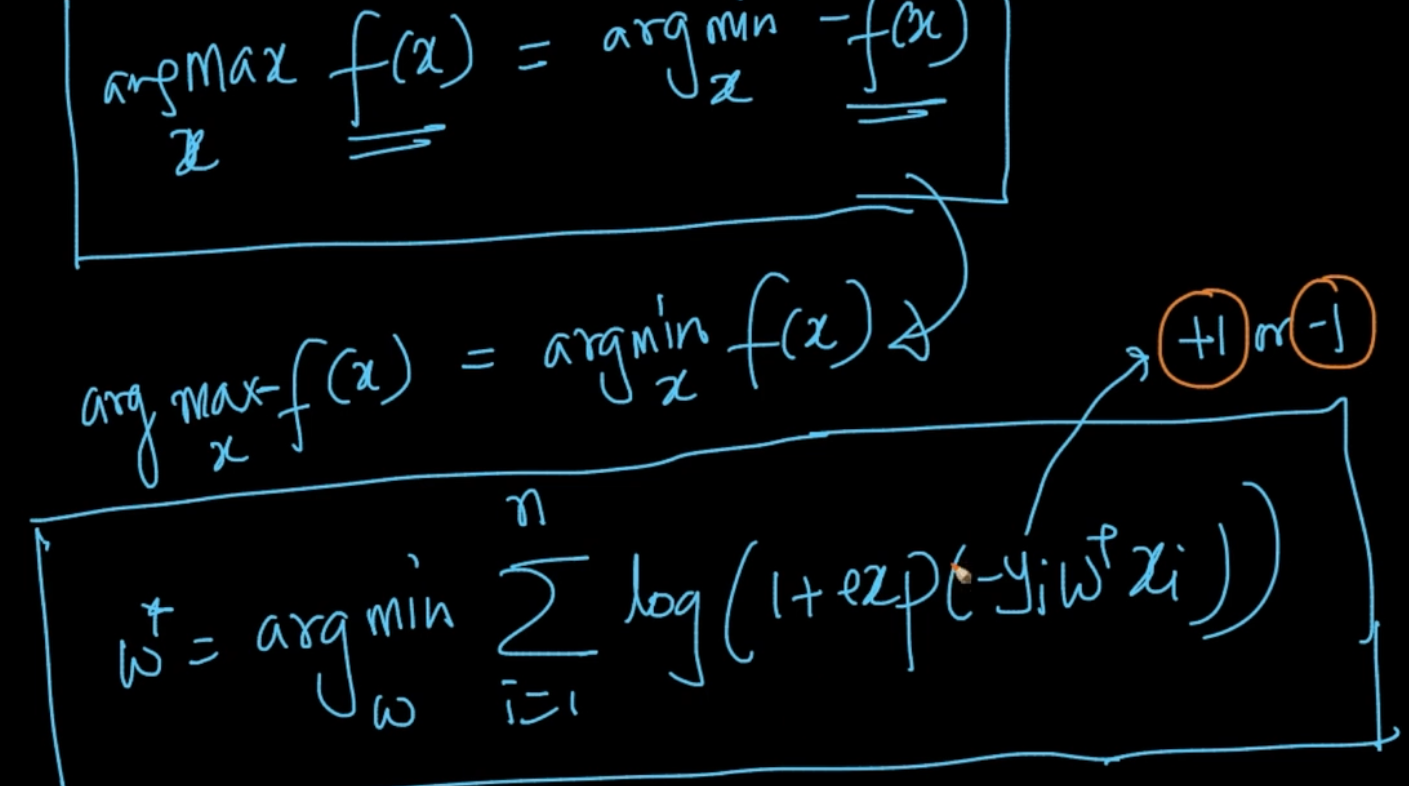 argmax f(x) = argmin -f(x)
x x
arg max -f(x) = argmin f(x)
x x
+1 or -1
n
w* = arg min Σ log(1+exp(-yiwᵀxi))
w i=1